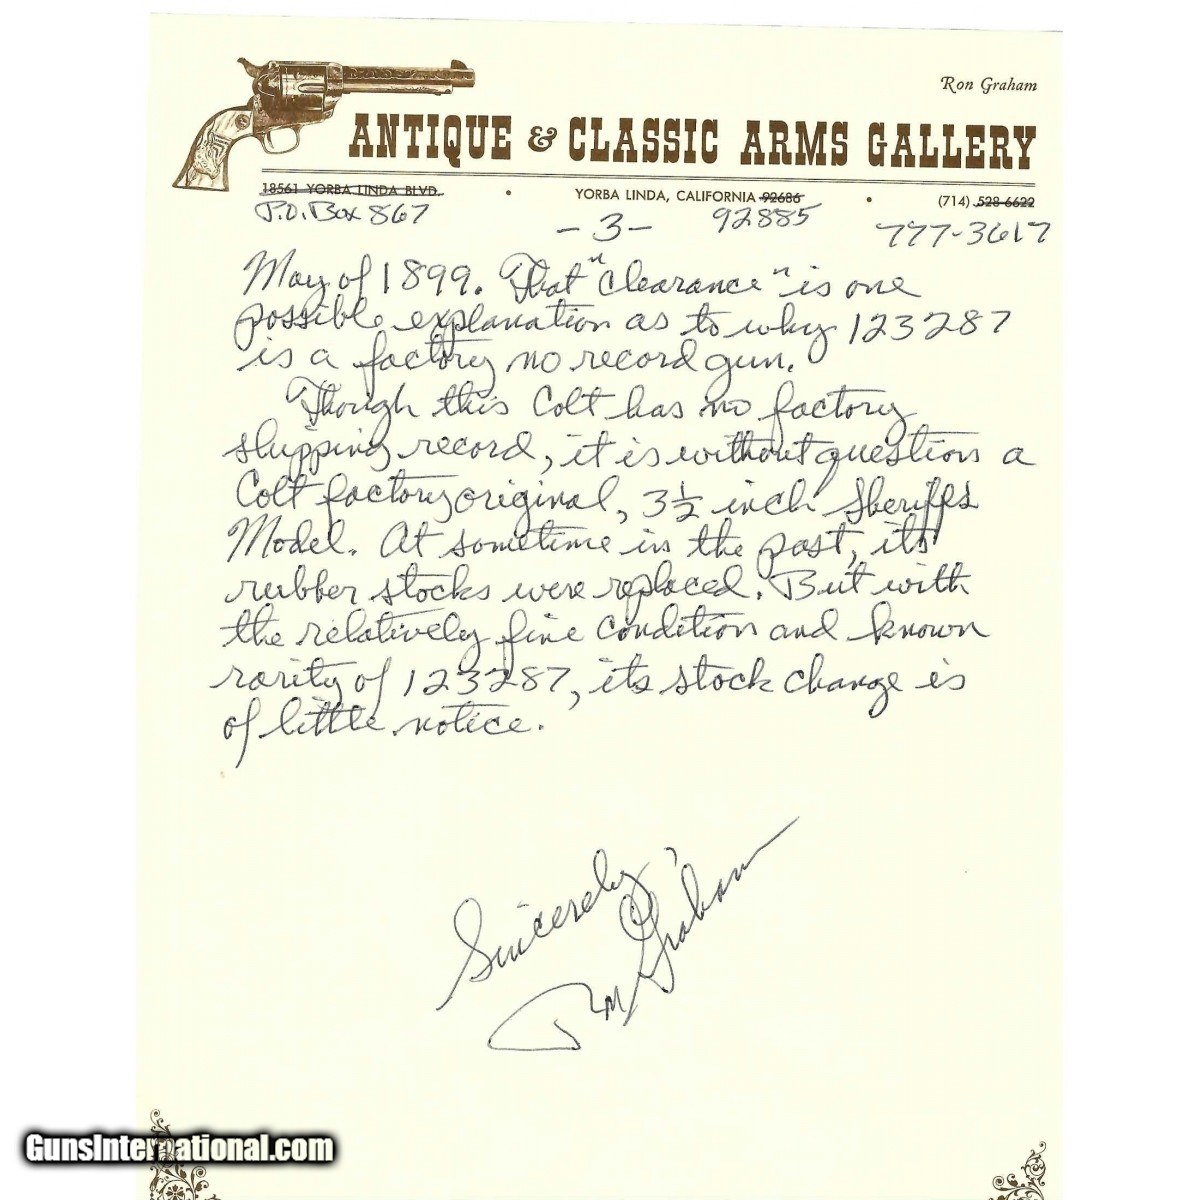 Ron Graham
ANTIQUE & CLASSIC ARMS GALLERY
18561 YORBA LINDA BLVD. • YORBA LINDA, CALIFORNIA 92686 • (714) 528-6622
P.O. Box 867 92885 777-3617
- 3 -
May of 1899. That "clearance" is one
possible explanation as to why 123287
is a factory no record gun.
Though this Colt has no factory
shipping record, it is without question a
Colt factory original, 3 1/2 inch Sheriffs
Model. At sometime in the past, its
rubber stocks were replaced. But with
the relatively fine condition and known
rarity of 123287, its stock change is
of little notice.
Sincerely,
Ron Graham
GunsInternational.com